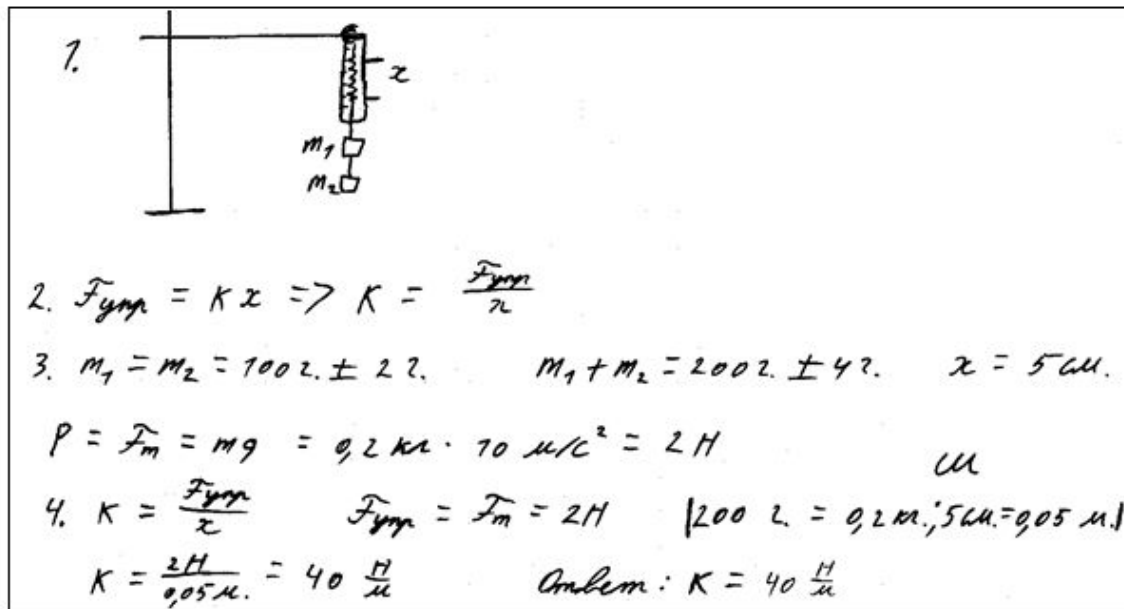 1.
x
m₁
m₂
2. Fупр = K x => K = Fупр / x
3. m₁ = m₂ = 100 г. ± 2 г. m₁ + m₂ = 200 г. ± 4 г. x = 5 см.
P = Fт = mg = 0,2 кг · 10 м/с² = 2 Н
4. K = Fупр / x Fупр = Fт = 2Н |200 г. = 0,2 кг.; 5 см. = 0,05 м.|
K = 2Н / 0,05 м. = 40 Н/м Ответ: K = 40 Н/м